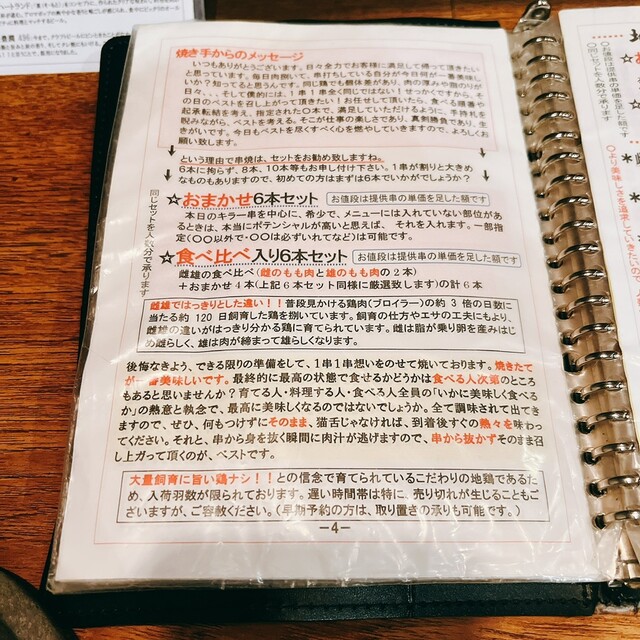 焼き手からのメッセージ
いつもありがとうございます。日々全力でお客様に満足して帰って頂きたい
と思っています。毎日肉捌いて、串打ちしている自分が今日何が一番美味し
いか？知ってると思うんです。同じ鶏でも個体差があり、肉の厚みや脂のりが
日々、、、そして僕的には、1串1串全く同じではない！せっかくですから、そ
の日のベストを召し上がって頂きたい！お任せして頂いたら、食べる順番や
起承転結を考え、指定された○本で、満足していただけるように、手持札を
睨みながら、ベストを考える。そこが仕事の楽しさであり、真剣勝負であり、生
きがいです。今日もベストを尽くすべく心を燃やしていきますので、よろしくお
願い致します。
という理由で串焼は、セットをお勧め致しますね。
6本に拘らず、8本、10本等もお申し付け下さい。1串が割りと大き
なものもありますので、初めての方はまずは6本でいかがでしょうか？
同じセットを人数分で承ります
☆おまかせ6本セット お値段は提供串の単価を足した額です
本日のキラー串を中心に、希少で、メニューには入れていない部位が
あるときは、本当にポテンシャルが高いと思えば、それを入れます。一部指
定(○○以外で・○○は必ずいれてなど)は可能です。
☆食べ比べ入り6本セット お値段は提供串の単価を足した額です
雌雄の食べ比べ(雌のもも肉と雄のもも肉の2本)
+おまかせ4本(上記6本セット同様に厳選致します)の計6本
雌雄ではっきりとした違い！！普段見かける鶏肉(ブロイラー)の約 3 倍の日数に
当たる約 120 日飼育した鶏を捌いています。飼育の仕方やエサの工夫にもより、
雌雄の違いがはっきり分かる鶏に育てられています。雌は脂が乗り卵を産みはじ
め雌らしく、雄は肉が締まって雄らしくなります。
後悔なきよう、できる限りの準備をして、1串1串想いをのせて焼いております。焼きたて
が一番美味しいです。最終的に最高の状態で食せるかどうかは食べる人次第のところ
もあると思いませんか？育てる人・料理する人・食べる人全員の「いかに美味しく食べる
か」の熱意と執念で、最高に美味しくなるのではないでしょうか。全て調味されて出てき
ますので、ぜひ、何もつけずにそのまま、猫舌じゃなければ、到着後すぐの熱々を味わっ
てください。それと、串から身を抜く瞬間に肉汁が逃げますので、串から抜かずそのまま召
し上がって頂くのが、ベストです。
大量飼育に旨い鶏ナシ！！との信念で育てられているこだわりの地鶏であるた
め、入荷羽数が限られております。遅い時間帯は特に、売り切れが生じることもご
ざいますが、ご容赦ください。(早期予約の方は、取り置きの承りも可能です。)
－4－